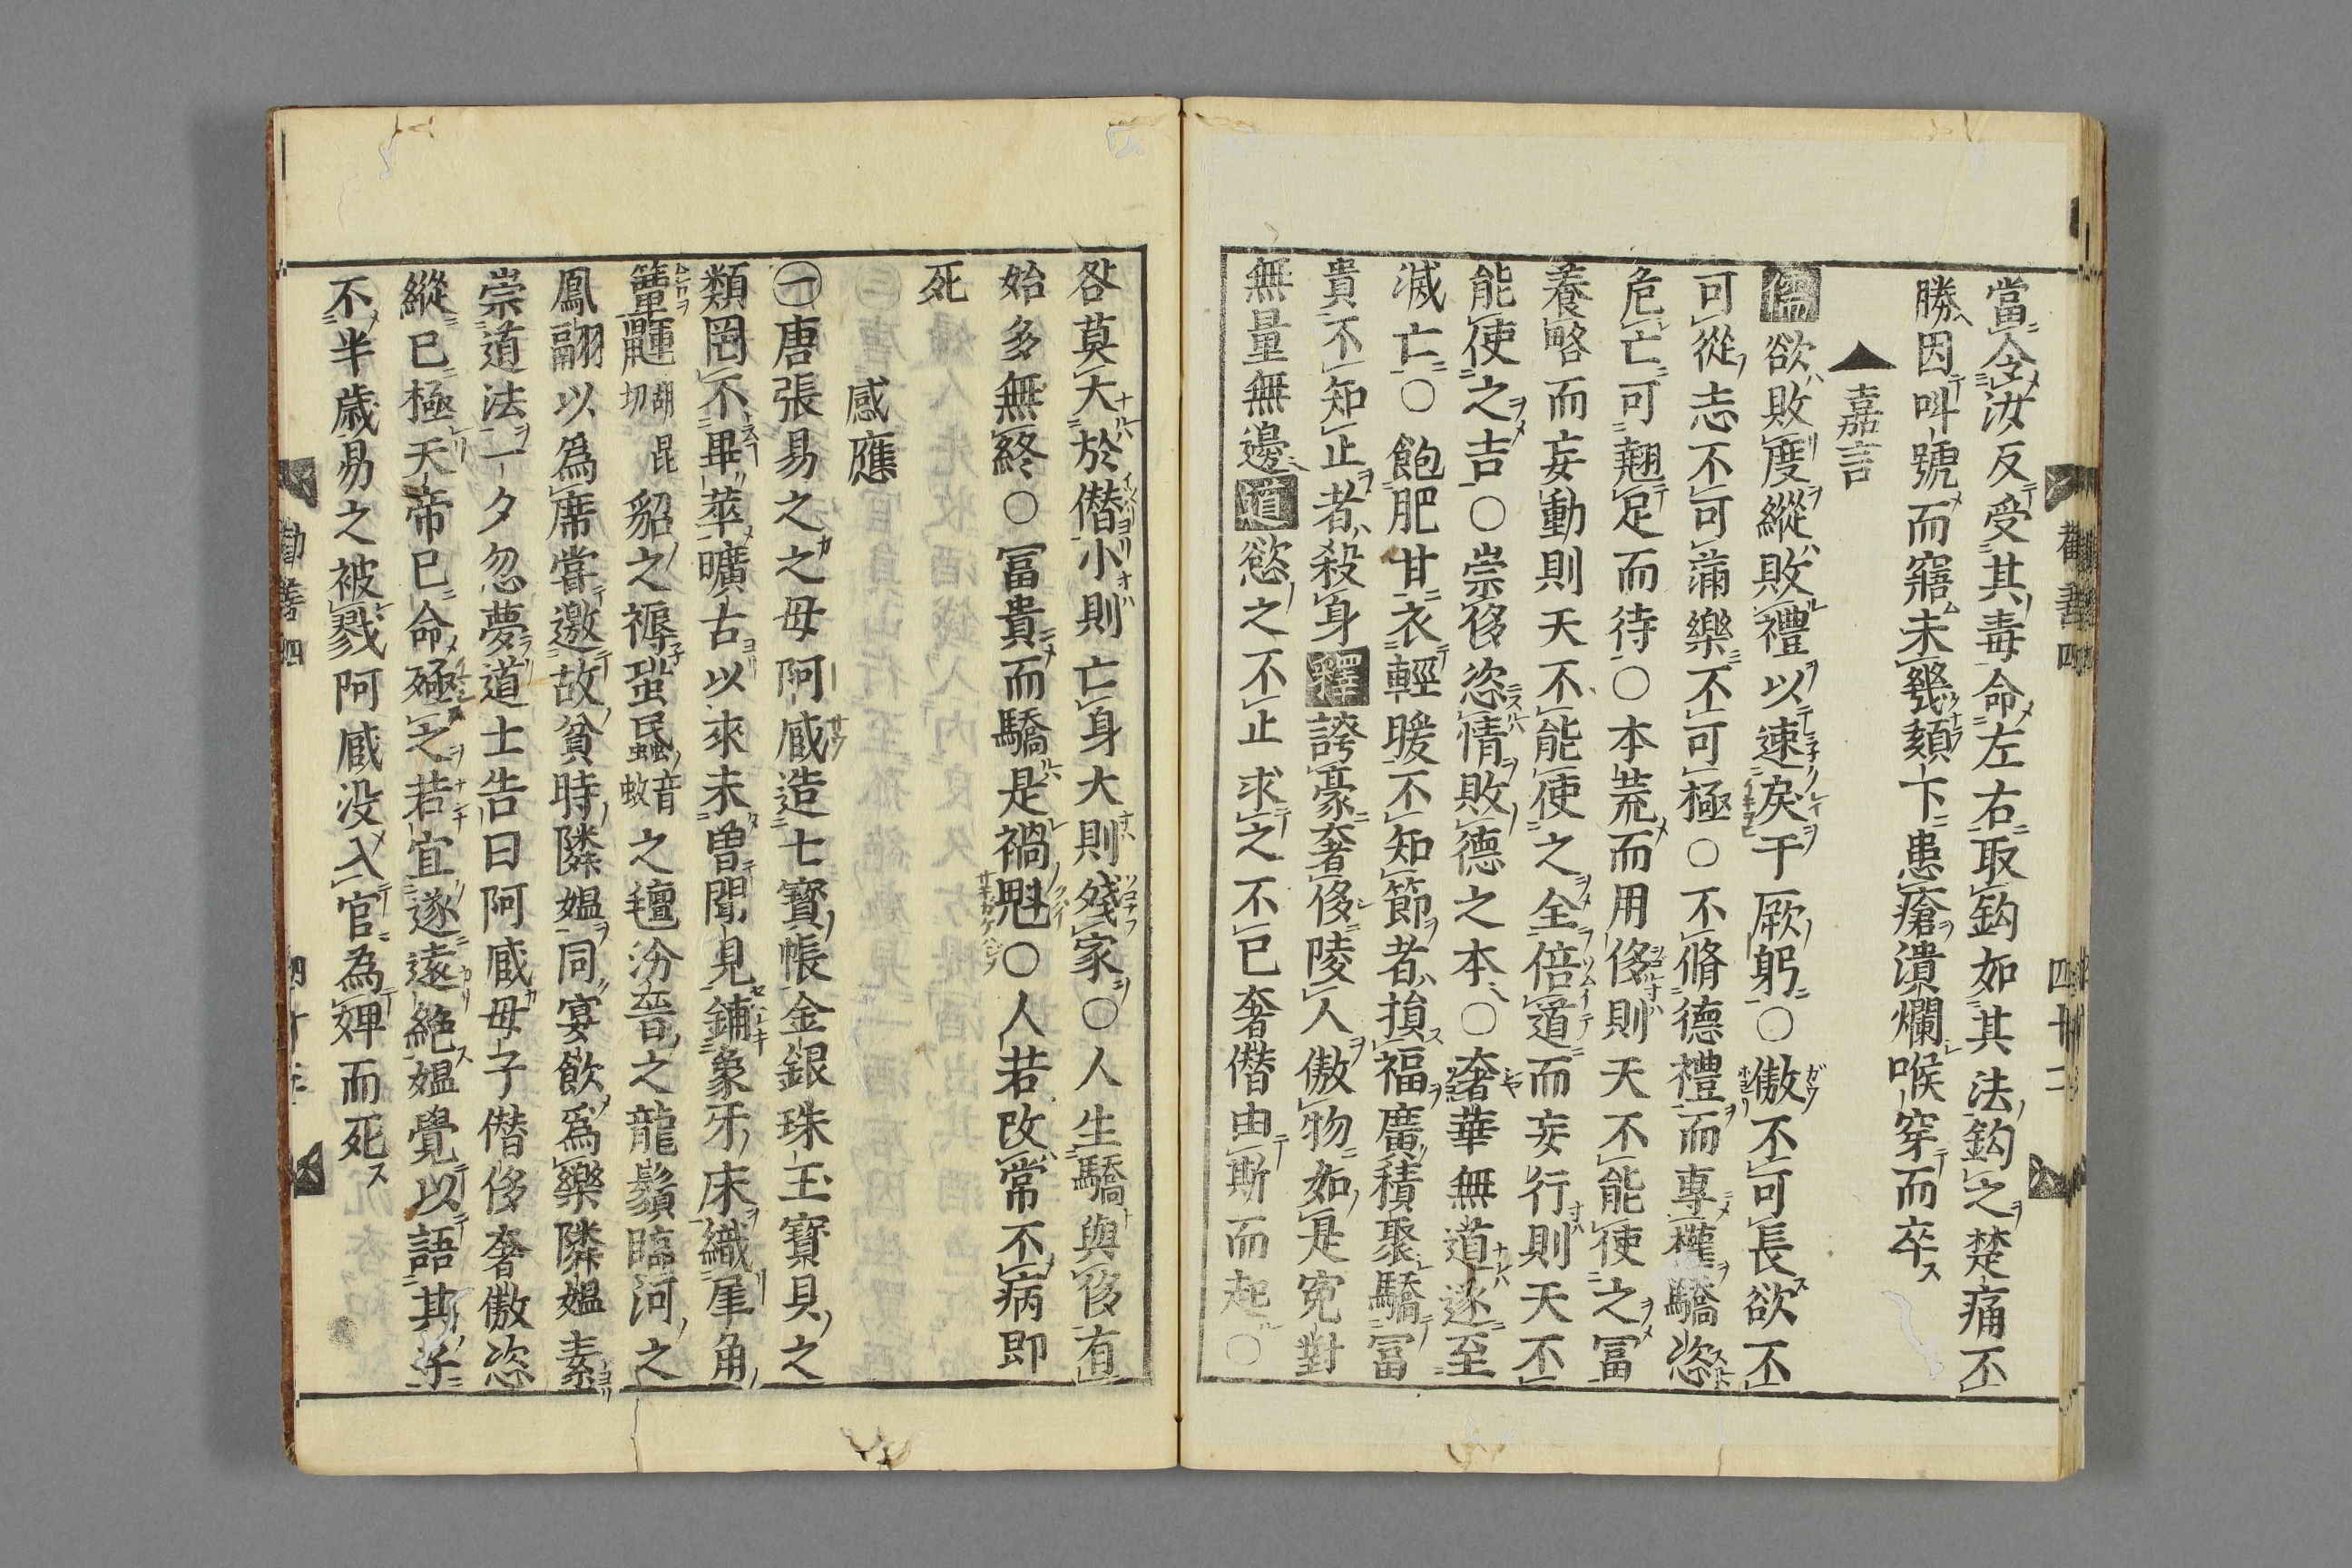 當令汝反受其毒命左右取鈎如其法鈎之楚痛不
勝因叫號而寤未幾頦下患瘡潰爛喉穿而卒
▲嘉言
儒欲敗度縱敗禮以速戾于厥躬○傲不可長欲不
可從志不可滿樂不可極○不脩德禮而專權驕恣
危亡可翹足而待○本荒而用侈則天不能使之冨
養略而妄動則天不能使之全倍道而妄行則天不
能使之吉○崇侈恣情敗德之本○奢華無道遂至
滅亡○飽肥甘衣輕暖不知節者損福廣積聚驕冨
貴不知止者殺身釋誇豪奢侈陵人傲物如是寃對
無量無邊道慾之不止求之不已奢僭由斯而起○
勸善四
四十二
咎莫大於僭小則亡身大則殘家○人生驕與侈有
始多無終○冨貴而驕是禍魁○人若改常不病即
死
感應
㊀唐張易之之母阿臧造七寶帳金銀珠玉寳貝之
類罔不畢萃曠古以來未曽聞見鋪象牙床織犀角
簟鼲胡昆切貂之褥蛩蟁音蚊之氊汾晉之龍鬚臨河之
鳳翮以爲席嘗邀故貧時隣媼同宴飲爲樂隣媼素
崇道法一夕忽夢道士告曰阿臧母子僭侈奢傲恣
縱已極天帝已命殛之若宜遂遠絶媼覺以語其子
不半歳易之被戮阿臧没入官為婢而死
勸善四